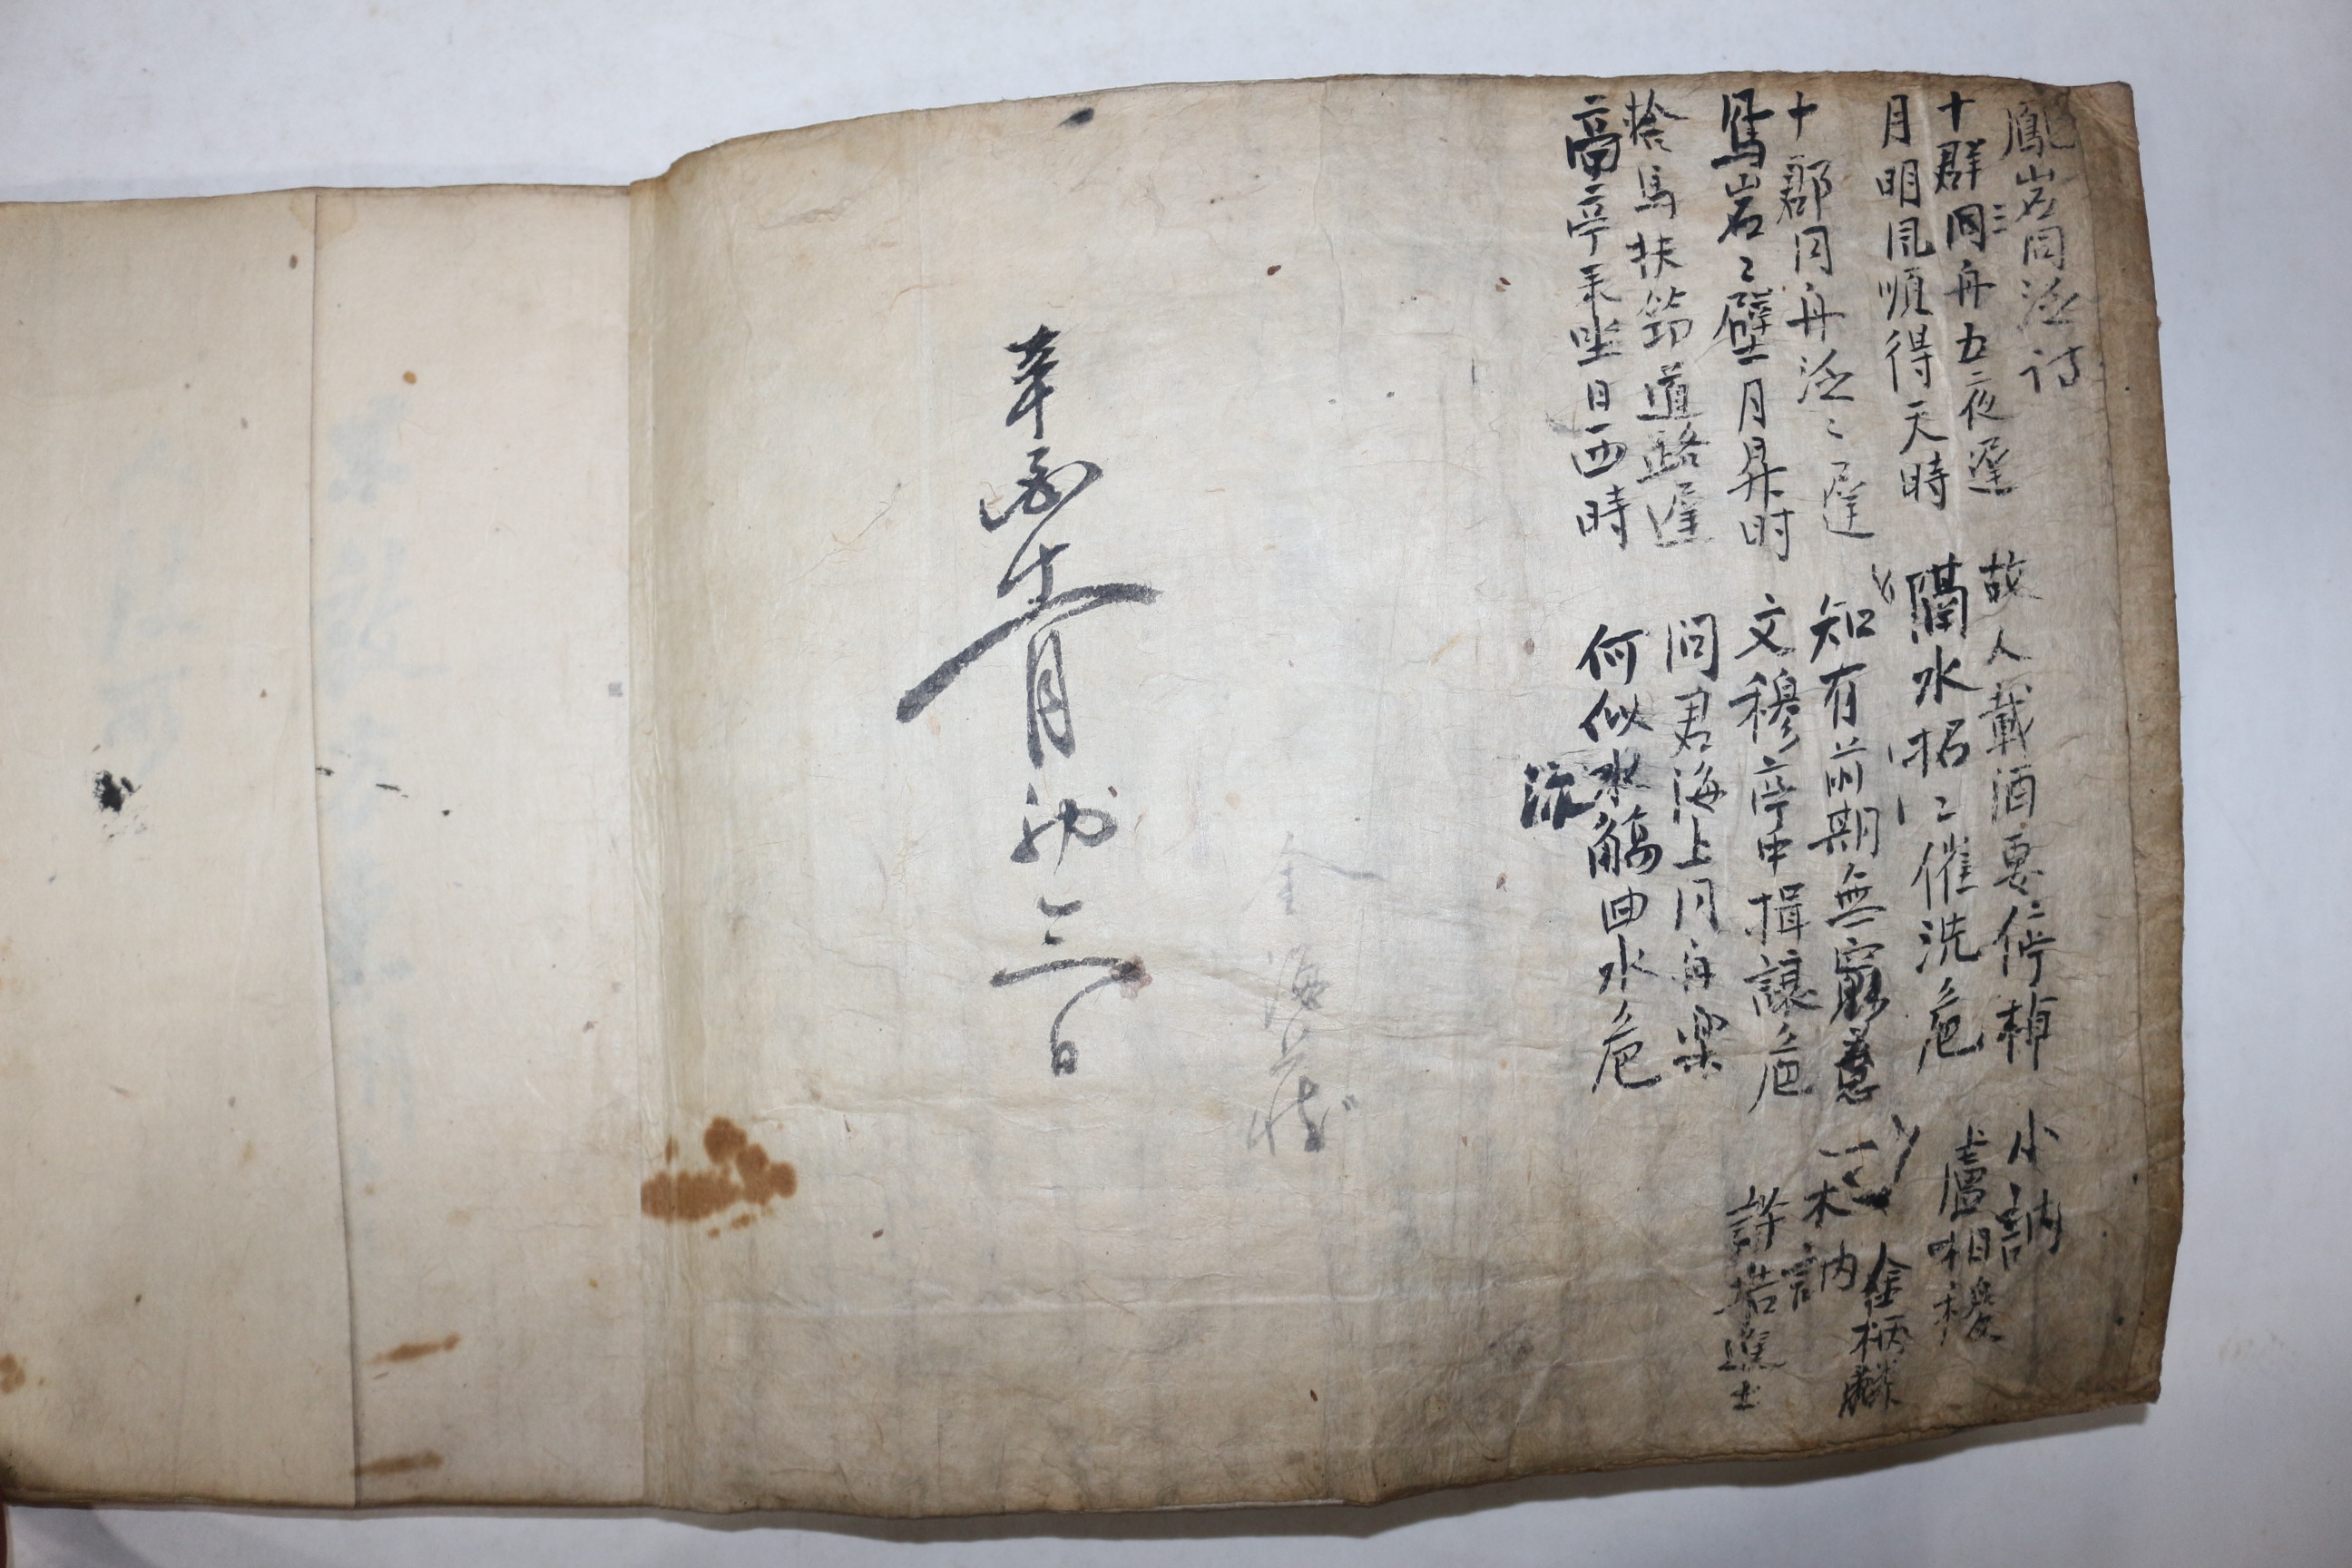 鳳岩同泛詩
十群同舟五夜遅 故人載酒要停棹 小訥
三
月明風順得天時 隔水招〻催洗卮 盧相稷
十郡同舟泛〻遅 知有前期無窮意 金柄麟
鳳岩〻壁月昇时 文穆亭中揖讓卮 一木訥
捨馬扶筇道路遅 問君海上同舟樂 許 進士
高亭來坐日西時 何似水觴曲水卮
流
辛 十二月初三日
金海